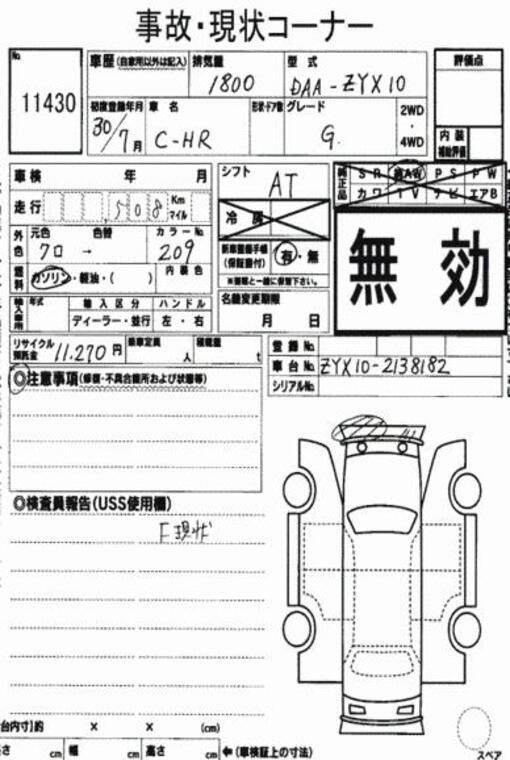 事故・現状コーナー
No. 11430
車歴(自家用以外は記入) 排気量 1800 型式 DAA-ZYX10 評価点
初度登録年月 30/7月 車名 C-HR 形状・ドア数 グレード G. 2WD・4WD 内装補助評価
車検 年 月 シフト AT 純正品 SR 革 AW PS PW
カワ TV ナビ エアB
走行 ,508 Km マイル 冷房
外色 元色 クロ → 色替 カラーNo. 209 新車整備手帳(保証書付) 有・無
※書類と一緒に保管下さい。
燃料 ガソリン・軽油・( ) 内装色 名義変更期限 月 日
無効
輸入車用 年式 輸入区分 ハンドル
ディーラー・並行 左・右
リサイクル預託金 11,270円 乗車定員 人 積載量 t
登録No.
車台No. ZYX10-2138182
シリアルNo.
◎注意事項(修復・不具合箇所および状態等)
◎検査員報告(USS使用欄)
F現状
台内寸]約 × × (cm)
長さ cm 幅 cm 高さ cm ←(車検証上の寸法)
スペア